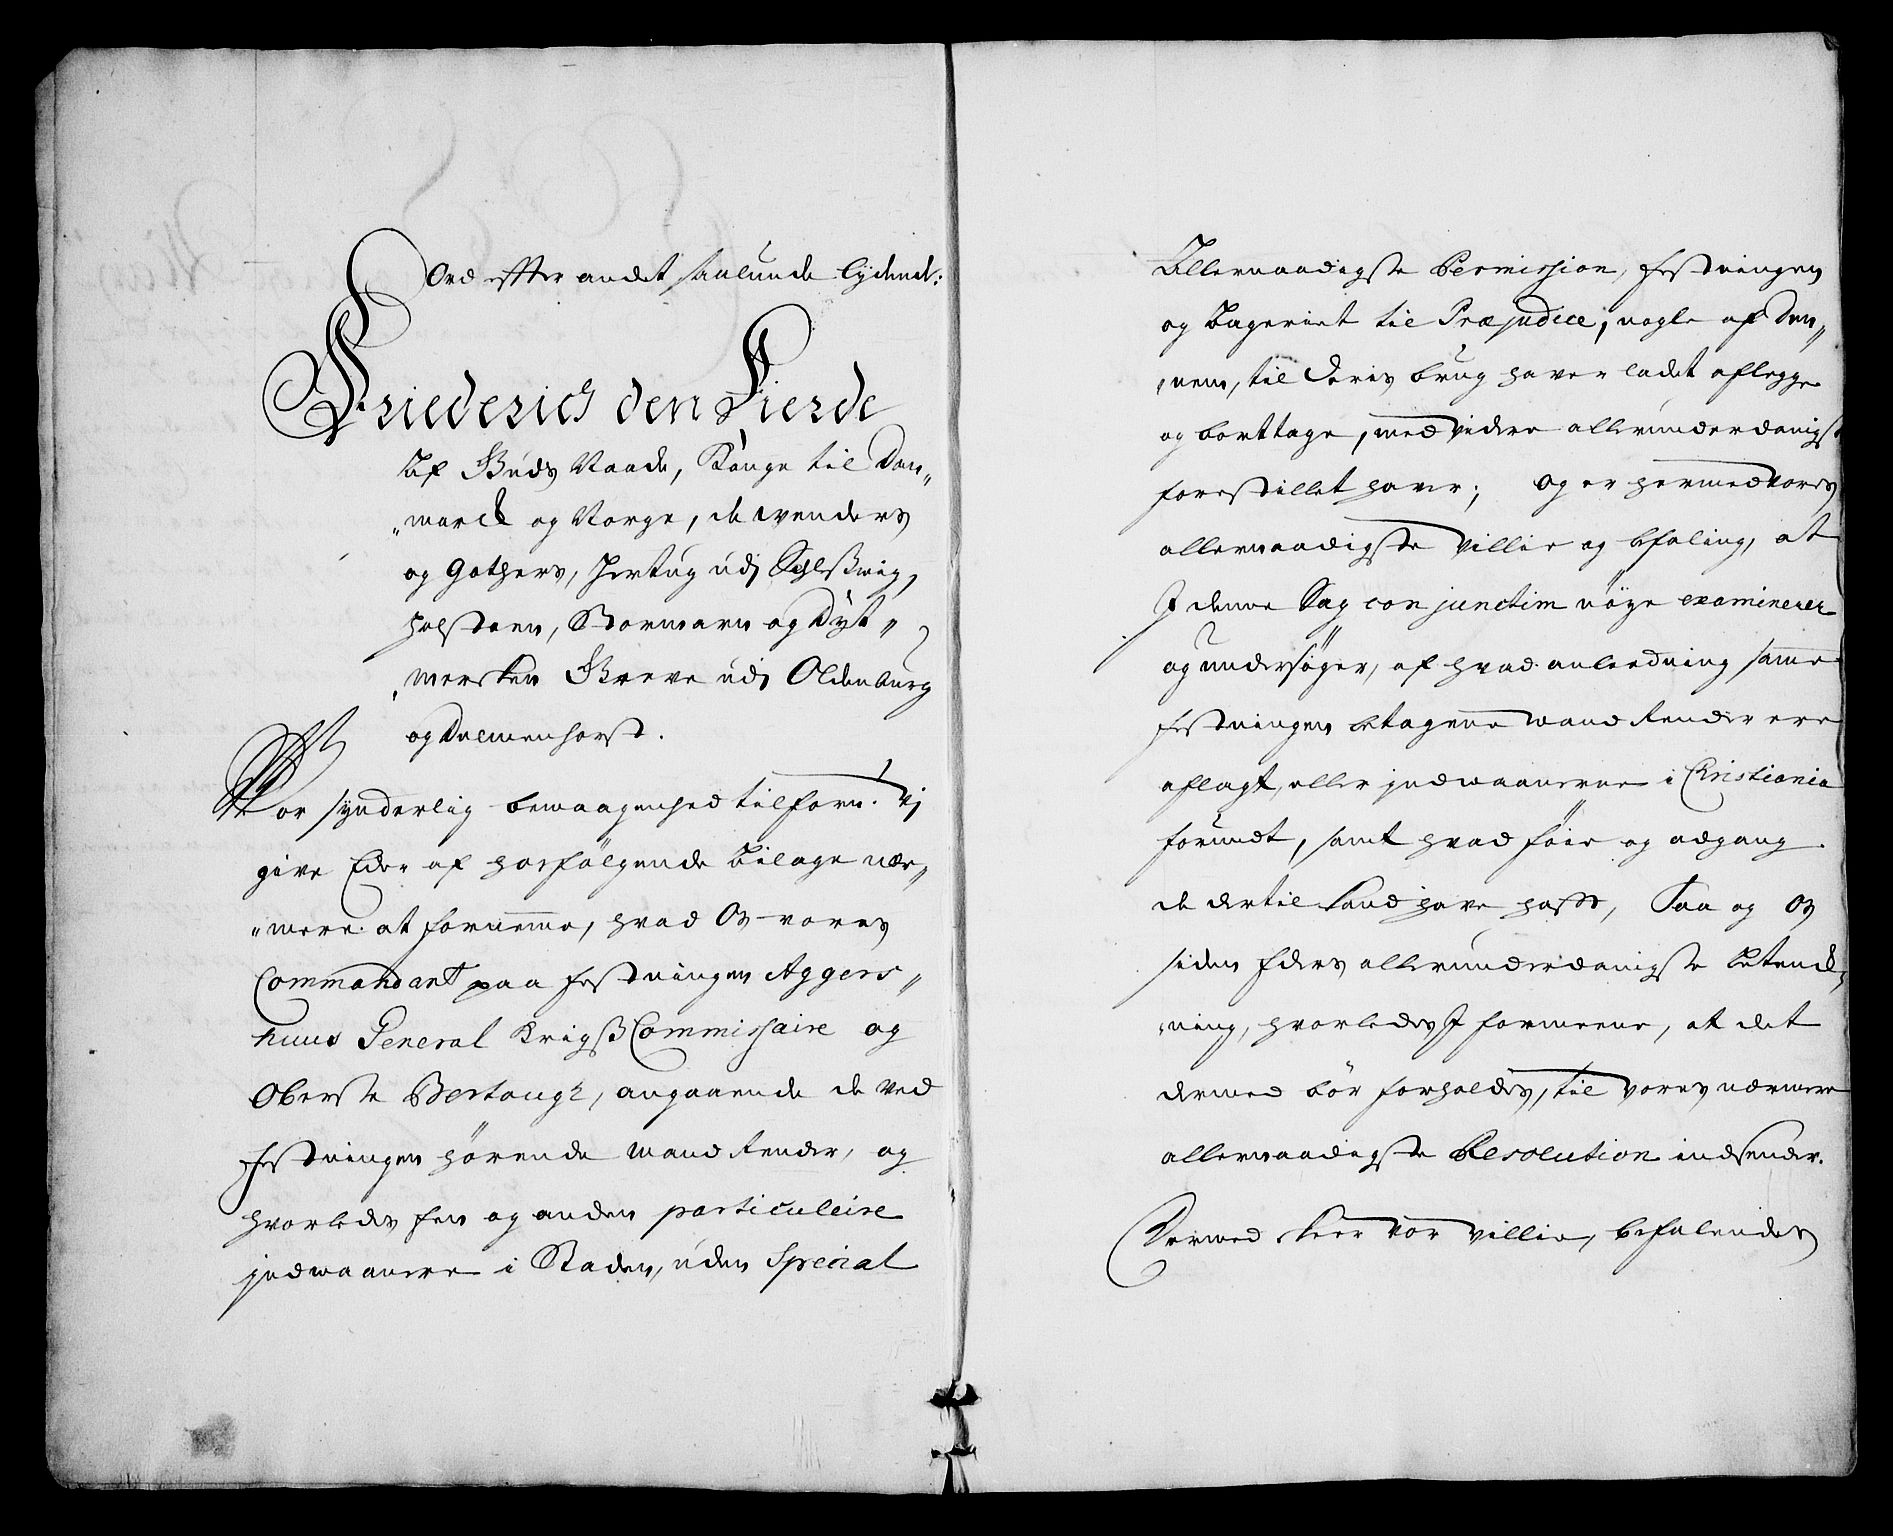 Ord efter andet saalunde lydende:
Friederich den Fierde
Af Guds Naade, Konge til Dan„
„march og Norge, de Wenders
og Gothers, Hertug udj Schleßwig,
Holsteen, Stormarn og Dyt„
„mersken Greve udj Oldenburg
og Delmenhorst.
Vor synderlig bewaagenhed tilforn. Vj
give Eder af hosfölgende Bilage nær„
„mere at fornemme, hvad Os vores
Commandant paa Festningen Aggers„
huus General Krigß Commissaire og
Oberste Bertouch, angaaende de ved
Festningen hörende Wand Render, og
hvorledes Een og anden particuleire
jndwaanere i Staden, uden Special
Allernaadigste Permission, Festningen
og Bageriet til Præjudice, nogle af den„
„nem, til deris brug haver ladet aflegge
og borttage, med videre allerunderdanigst
forestillet haver; Og er hermed vores
allernaadigste Villie og befaling, at
J denne Sag conjunctim nöye examinerer
og undersöger, af hvad anleedning samme
Festningen betagene Wand Render ere
aflagt, eller jndwaanerne i Christiania
forundt, samt hvad föie og adgang
de dertil kand have hafft, Saa og Os
siden Eders allerunderdanigste Betenk„
„ning, hvorledes J formeene, at det
dermed bör forholdes, til vores nærmere
allernaadigste Resolution indsender.
Dermed skeer vor Villie, befalendes